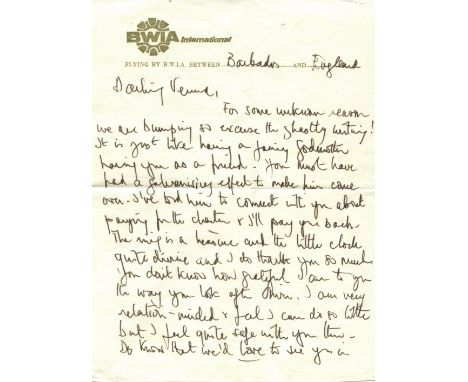 BWIA International
FLYING BY B.W.I.A BETWEEN Barbados AND England
Darling Verna,
For some unknown reason
we are bumping so excuse the ghastly writing!
It is just like having a fairy godmother
having you as a friend. You must have
had a galvanising effect to make him come
over. I've told him to connect with you about
paying for the charter & I'll pay you back.
The mug is a treasure and the little clock
quite divine and I do thank you so much
you don't know how grateful I am to you
the way you look after I am very
relation-minded & feel I can do so little
but I feel quite safe with you there
Do know that we'd love to see you in